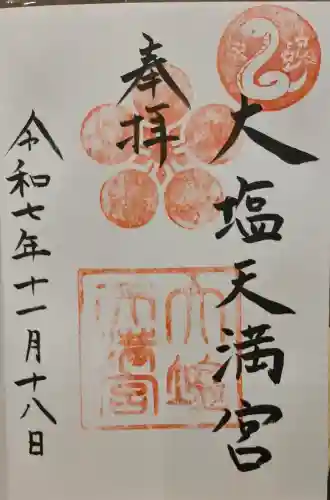 大塩天満宮
奉拝
大塩
天満宮
令和七年十一月十八日